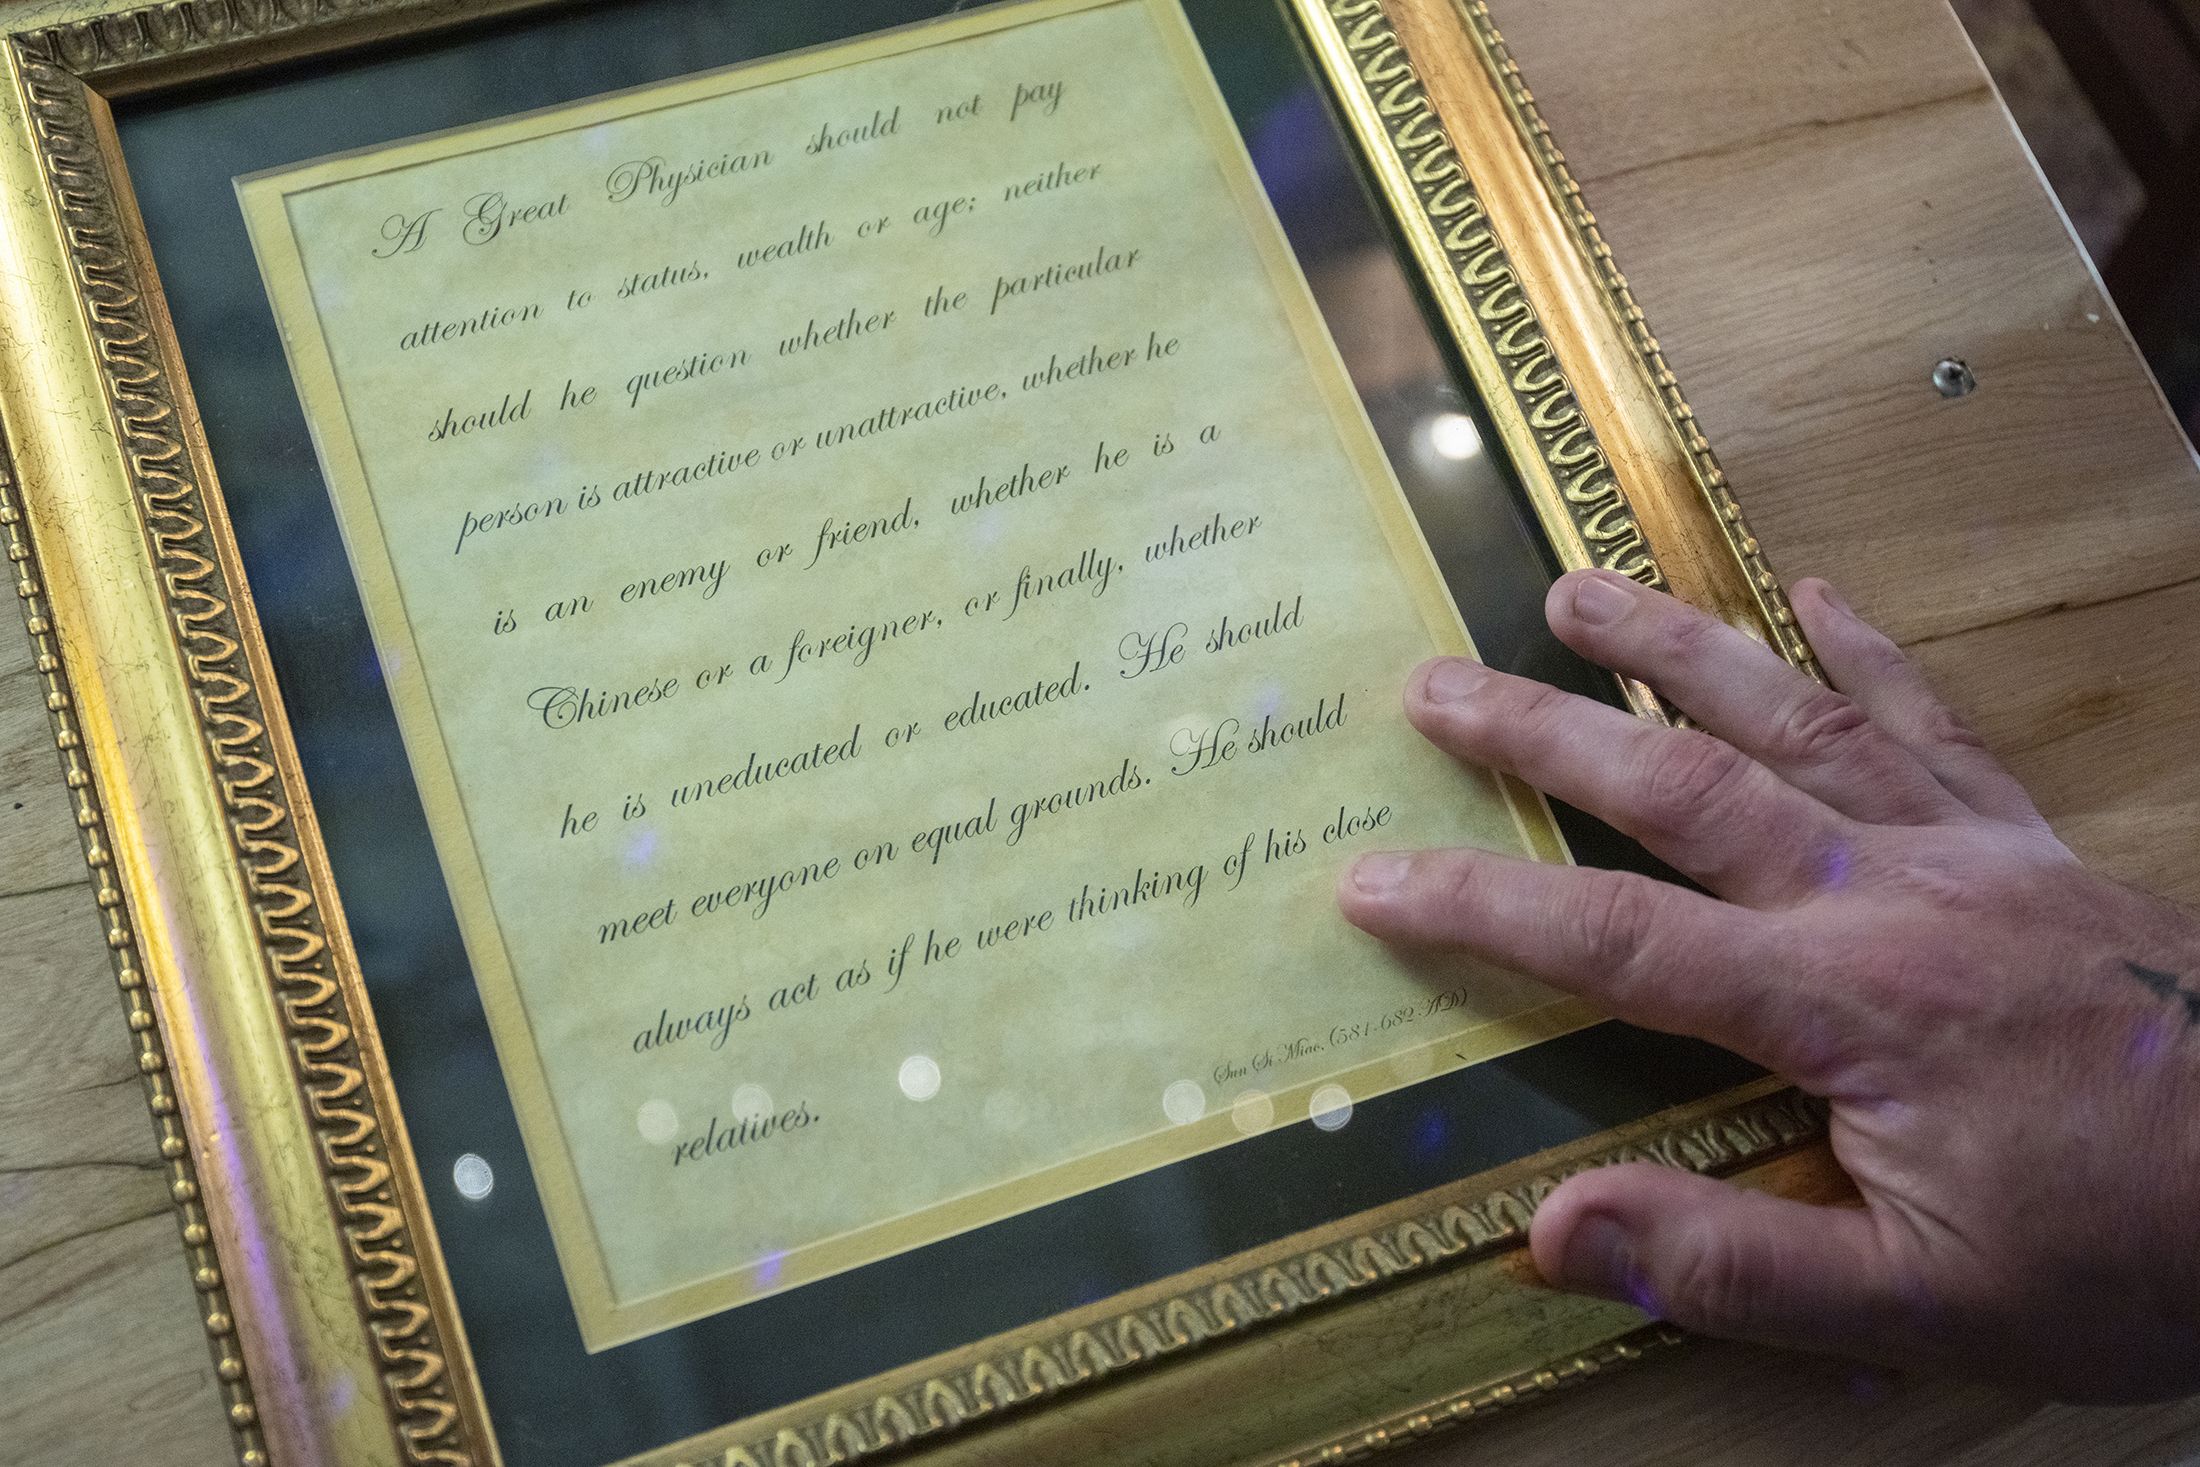 A Great Physician should not pay
attention to status, wealth or age; neither
should he question whether the particular
person is attractive or unattractive, whether he
is an enemy or friend, whether he is a
Chinese or a foreigner, or finally, whether
he is uneducated or educated. He should
meet everyone on equal grounds. He should
always act as if he were thinking of his close
relatives.
Sun Si Miao, (581-682 AD)